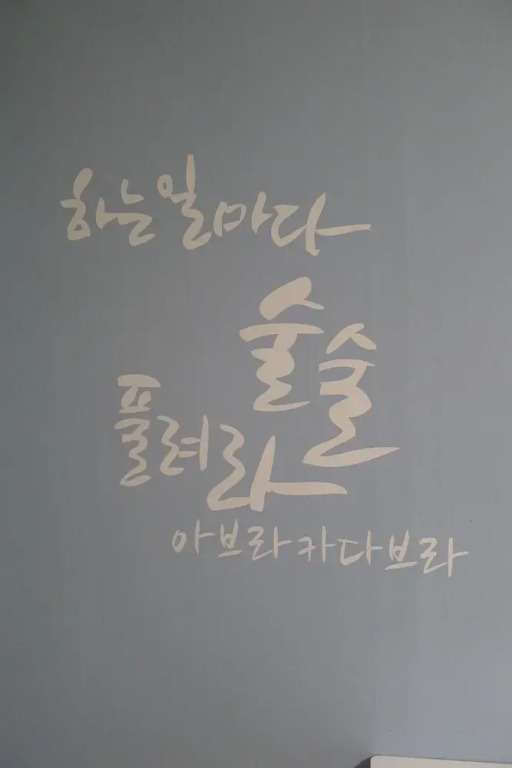 하는 일마다
술술
풀려라
아브라카다브라